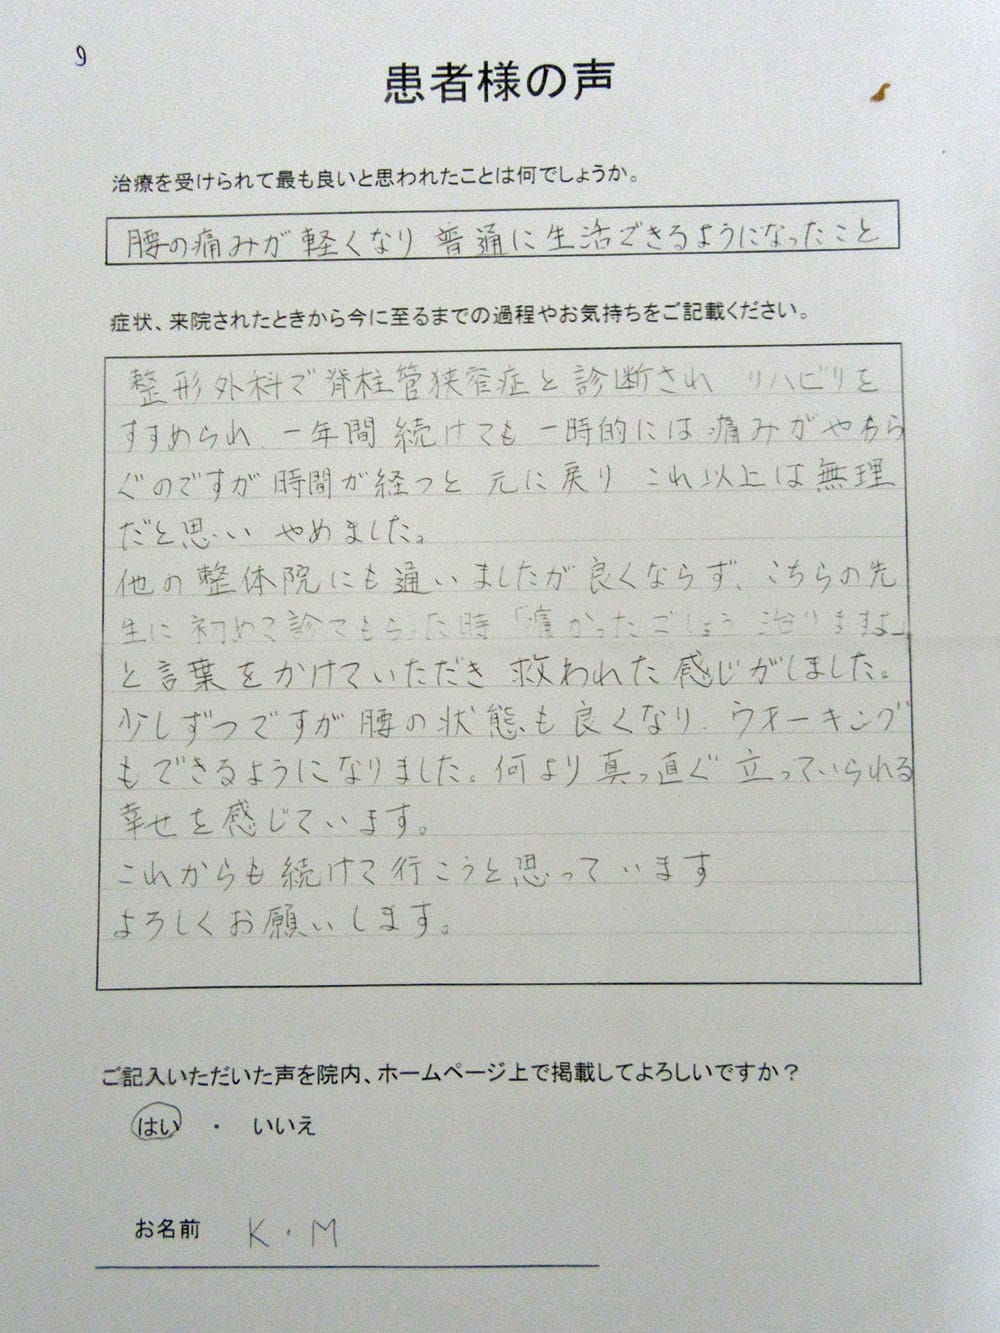 9
患者様の声
治療を受けられて最も良いと思われたことは何でしょうか。
腰の痛みが軽くなり 普通に生活できるようになったこと
症状、来院されたときから今に至るまでの過程やお気持ちをご記載ください。
整形外科で脊柱管狭窄症と診断され リハビリを
すすめられ、一年間続けても一時的には痛みがやわら
ぐのですが時間が経つと 元に戻り これ以上は無理
だと思い やめました。
他の整体院にも通いましたが良くならず、こちらの先
生に初めて診てもらった時「痛かったでしょう 治りますよ」
と言葉をかけていただき 救われた感じがしました。
少しずつですが腰の状態も良くなり、ウオーキング
もできるようになりました。何より真っ直ぐ立っていられる
幸せを感じています。
これからも続けて行こうと思っています
よろしくお願いします。
ご記入いただいた声を院内、ホームページ上で掲載してよろしいですか?
はい ・ いいえ
お名前 K・M